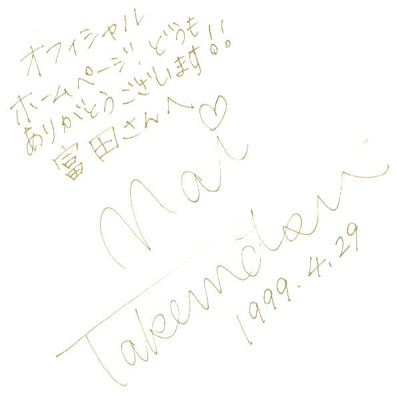 オフィシャル
ホームページ、どうも
ありがとうございます!!
富田さんへ♡
Mai
Takemotoni
1999.4.29